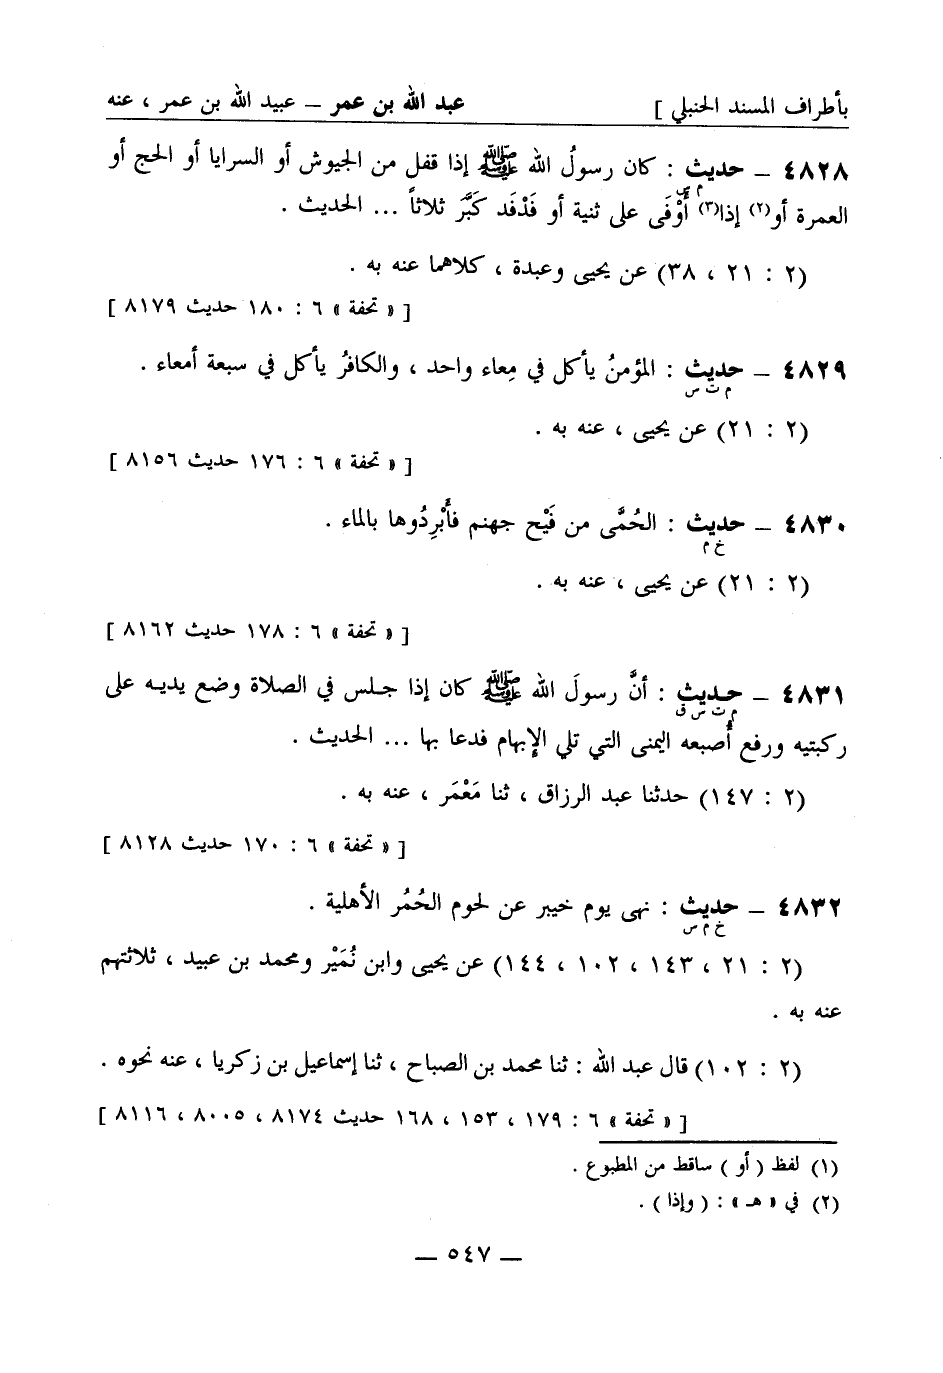 بأطراف المسند الحنبلي ] عبد الله بن عمر – عبيد الله بن عمر ، عنه
٤٨٢٨ – حديث : كان رسولُ الله ﷺ إذا قفل من الجيوش أو السرايا أو الحج أو
م س
العمرة أو(٢) إذا(٣) أَوْفَى على ثنية أو فَدْفَد كَبَّرَ ثلاثاً ... الحديث .
(٢ : ٢١ ، ٣٨) عن يحيى وعبدة ، كلاهما عنه به .
[ « تحفة » ٦ : ١٨٠ حديث ٨١٧٩ ]
٤٨٢٩ – حديث : المؤمنُ يأكل في مِعاء واحد ، والكافرُ يأكل في سبعة أمعاء .
م ت س
(٢ : ٢١) عن يحيى ، عنه به .
[ « تحفة » ٦ : ١٧٦ حديث ٨١٥٦ ]
٤٨٣٠ – حديث : الحُمَّى من فَيْح جهنم فأَبْرِدُوها بالماء .
خ م
(٢ : ٢١) عن يحيى ، عنه به .
[ « تحفة » ٦ : ١٧٨ حديث ٨١٦٢ ]
٤٨٣١ – حديث : أنَّ رسولَ الله ﷺ كان إذا جلس في الصلاة وضع يديه على
م ت س ق
ركبتيه ورفع أُصبعه اليمنى التي تلي الإبهام فدعا بها ... الحديث .
(٢ : ١٤٧) حدثنا عبد الرزاق ، ثنا مَعْمَر ، عنه به .
[ « تحفة » ٦ : ١٧٠ حديث ٨١٢٨ ]
٤٨٣٢ – حديث : نهى يوم خيبر عن لحوم الحُمُر الأهلية .
خ م س
(٢ : ٢١ ، ١٤٣ ، ١٠٢ ، ١٤٤) عن يحيى وابن نُمَيْر ومحمد بن عبيد ، ثلاثتهم
عنه به .
(٢ : ١٠٢) قال عبد الله : ثنا محمد بن الصباح ، ثنا إسماعيل بن زكريا ، عنه نحوه .
[ « تحفة » ٦ : ١٧٩ ، ١٥٣ ، ١٦٨ حديث ٨١٧٤ ، ٨٠٠٥ ، ٨١١٦ ]
(١) لفظ ( أو ) ساقط من المطبوع .
(٢) في « هـ » : ( وإذا ) .
– ٥٤٧ –